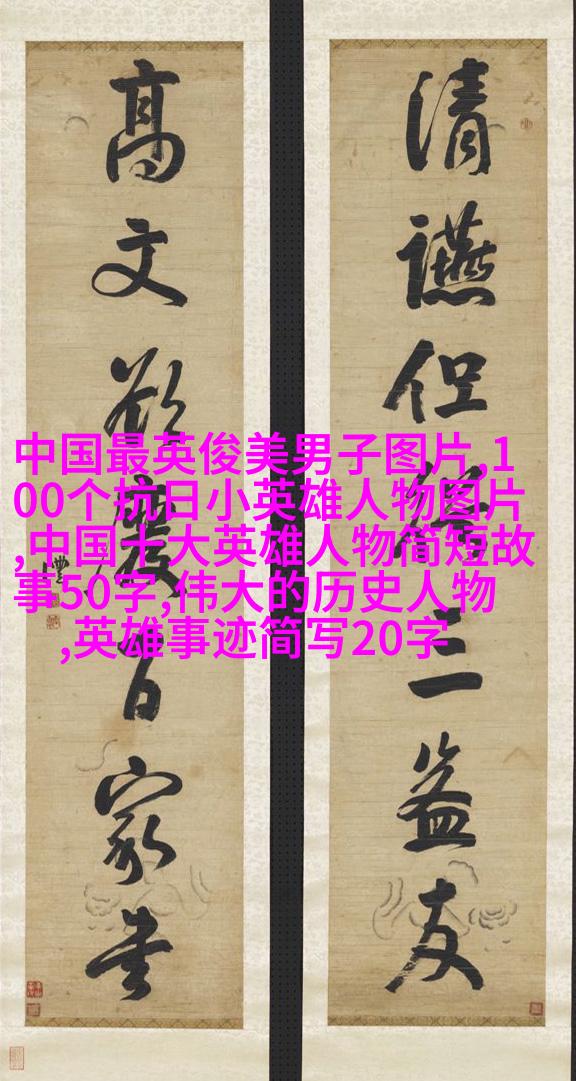 清讌但三益友
高文欲百家書
中国最英俊美男子图片,1
00个抗日小英雄人物图片
,中国十大英雄人物简短故
事50字,伟大的历史人物
,英雄事迹简写20字